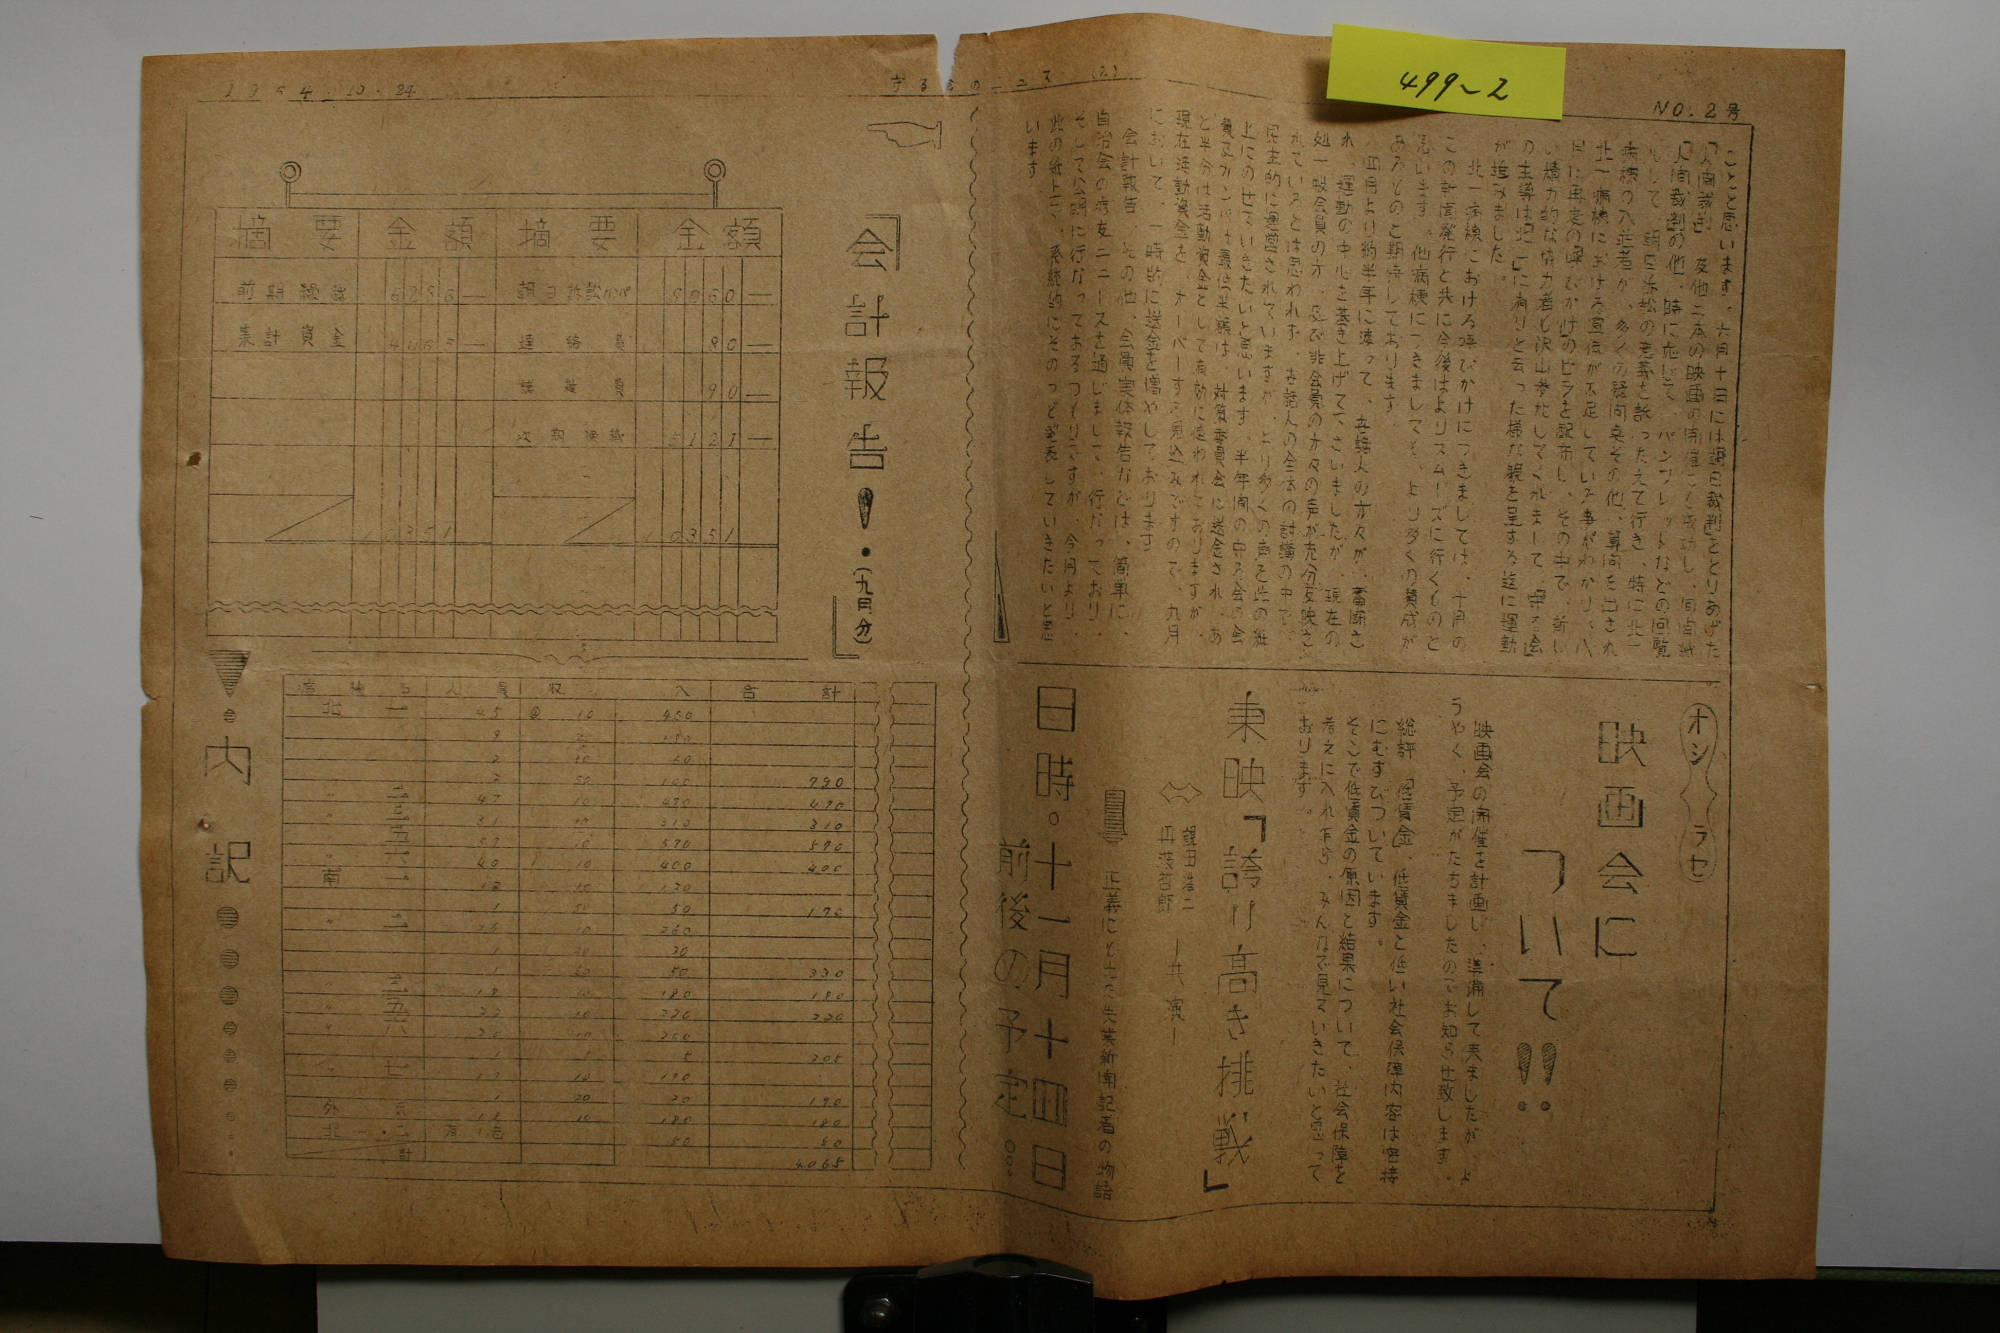 499~2
NO. 2 号
守る会のニュース (2)
1964.10.24
ことと思います。六月十日には朝日裁判をとりあげた
「人間裁判」及他二本の映画の開催にも成功し、同時に
「人間裁判の他、時に応じて、パンフレットなどの回覧
をして、朝日訴訟の意義を訴ったえて行き、特に北一
病棟の入荘者が、多くの疑問点その他、質問を出され
北一病棟における宣伝が不足している事がわかり、八
月に再度の呼びかけのビラを配布し、その中で、新し
い積力的な協力者も沢山参加してくれまして、「守る会
の主導は北一に有り」と云った様な観を呈する迄に運動
が進みました。
北一病棟における呼びかけにつきましては、十月の
この新聞発行と共に今後はよりスムーズに行くものと
思います。他病棟につきましても、より多くの賛成が
あるものと期待しております。
四月より約半年に渡って、世話人の方々が、奮闘さ
れ、運動の中心を築き上げて、さいましたが、現在の
処一般会員の方、及び非会員の方々の声が充分反映さ
れているとは思われず、世話人の全体の討議の中で、
民主的に運営されていますが、より多くの声を此の紙
上にのせていきたいと思います。半年間の守る会の会
費及カンパは最低半額は、対策委員会に送金され、あ
と半分は活動資金として有効に使われておりますが、
現在活動資金を、オーバーする見込みですので、九月
において、一時的に送金を増やしております
会計報告、その他、会員実体報告などは、簡単に、
自治会の療友ニュースを通じまして、行なっており、
そして公明に行なってあるつもりですが、今月より、
此の紙上で、系統的にそのつど発表していきたいと思
います
オシラセ
映画会に
ついて!!
映画会の開催を計画し、準備して来ましたが、よ
うやく、予定がたちましたのでお知らせ致します。
総評「低賃金」、低賃金と低い社会保障内容は密接
にむすびついています。
そこで低賃金の原因と結果について、社会保障を
考えに入れ乍ら、みんなで見ていきたいと思って
おります。
東映「誇り高き挑戦」
鶴田浩二
丹波哲郎
―共演―
正義にもえる失業新聞記者の物語
日時。十一月十四日
前後の予定。
「会計報告!・(九月分)」
摘要 金額 摘要 金額
前期繰越 6286― 朝日訴訟カンパ 5050―
集計資金 4065― 連絡員 90―
90―
次期繰越 5121―
10351 10351
内訳
病棟名 人員 収入 合計
北一 45 @10 450
9
2 30 60
2 50 100 790
〃二 47 10 470 470
〃三 31 10 310 310
〃五 57 10 570 570
〃六 40 10 400 400
南一 12 10 120
1 50 50 170
〃二 10 260
1 20 20
1 50 50 330
〃三 18 10 180 180
〃五 22 10 220 220
〃六 20 10 200
1 5 5 205
〃七 17 10 170
1 20 20 190
外気 18 10 180 180
50 50
計 4,065